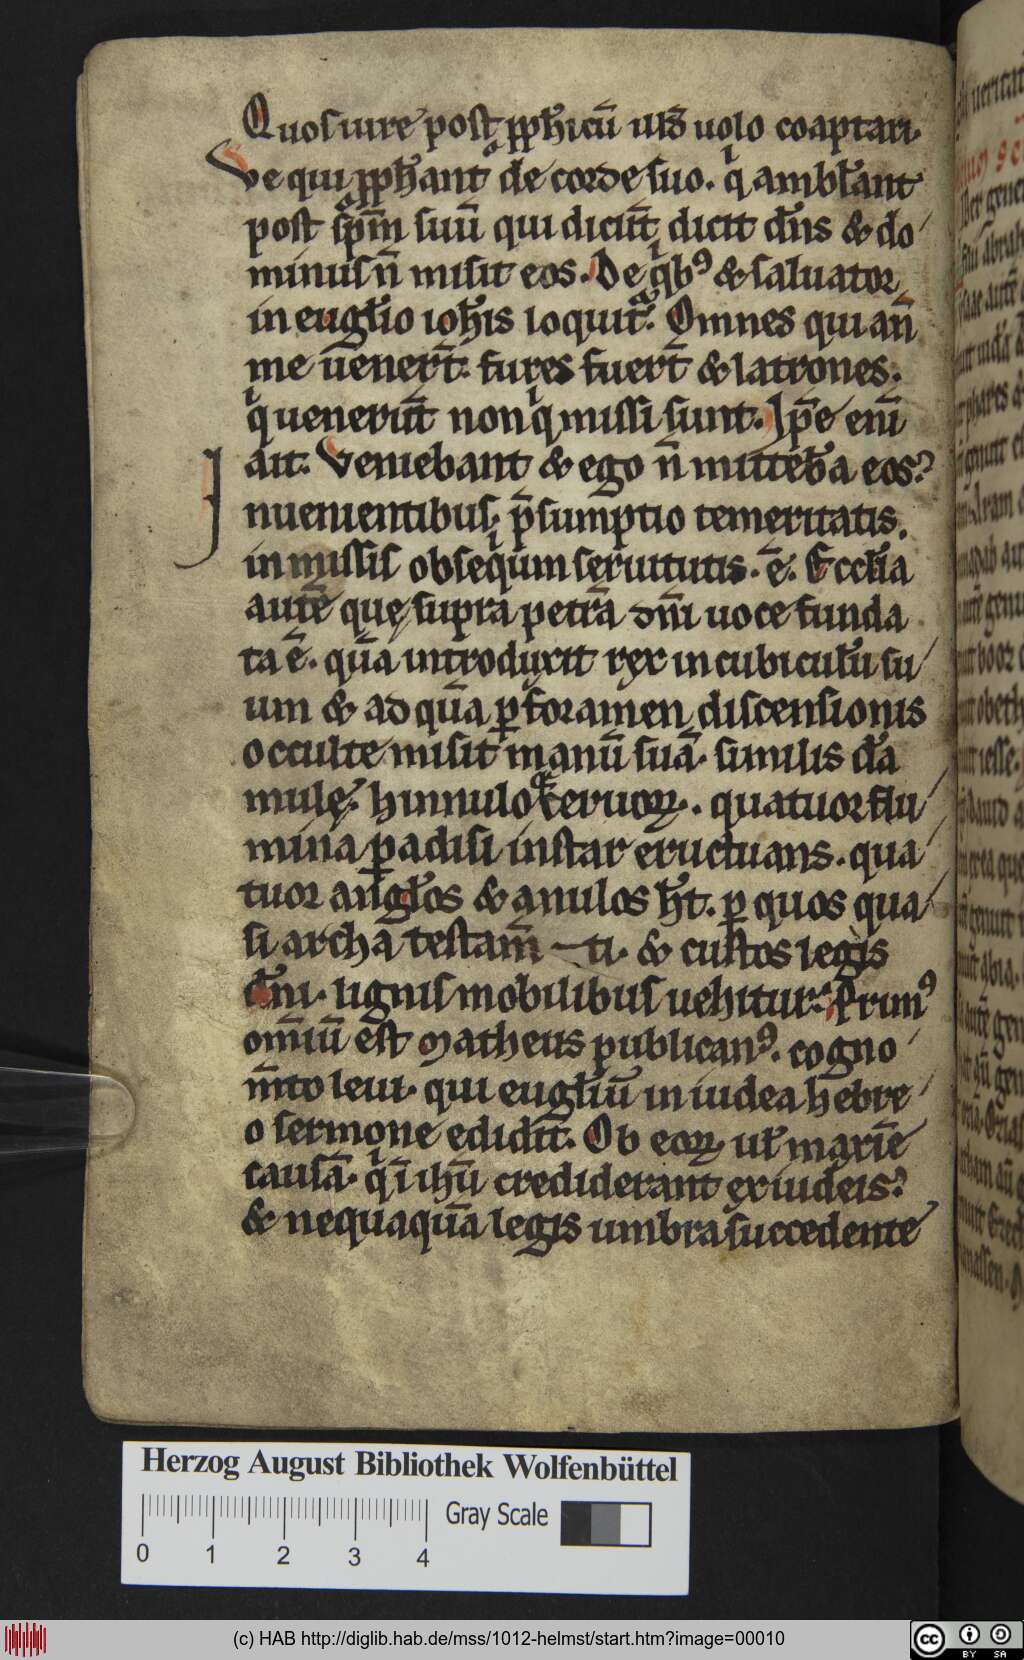 Quos iure post ꝓph̄icū uͥb̄ uolo coaptari.
Ve qui ꝓph̄ant de corde suo. qͥ ambl̄ant
post sp̄m suū qui dicūt dicit dn̄s & do
minus n̄ misit eos. De qͥbꝰ & saluator
in eugl̄io ioh̄is loquitᷓ. Omnes qui an̄
me uenert̄. fures fuert̄ & latrones.
qͥ uenerūt non qͥ missi sunt. Ip̄e eni̅
ait. Veniebant & ego n̄ mitteb̄a eos.
Inuenientibus p̄sumptio temeritatis.
in missis obsequͥm seruitutis. ē. Eccl̄ia
autē quę supra petrā dn̄i uoce funda
ta ē. quā introduxit rex in cubicul̄u su
um & ad quā ꝑ foramen discensionis
occulte misit manū suā. similis da̅
mulę. hinnulo qͥ ceruoꝝ. quatuor flu
mina paradisi instar eructuans. qua
tuor angl̄os & anulos h̄t. ꝑ quos qua
si archā testam̄ ti. & custos legis
dn̄i. lignis mobilibus uehitur. Primꝰ
omīu est Matheus publicanꝰ. cogno
m̄to leui. qui eugl̄iū in iudea hebre
o sermone edidit. Ob eoꝝ ul̄ maxiē
causā. qͥ ī ih̄u crediderant ex iudeis.
& nequaquā legis umbra succedente
Herzog August Bibliothek Wolfenbüttel
Gray Scale
0 1 2 3 4
(c) HAB http://diglib.hab.de/mss/1012-helmst/start.htm?image=00010
cc BY SA